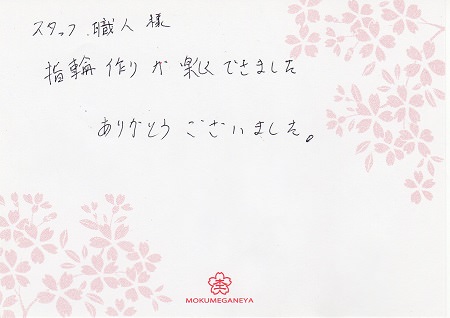 スタッフ 職人 様
指輪 作り が 楽しく できました
ありがとう ございました。
MOKUMEGANEYA